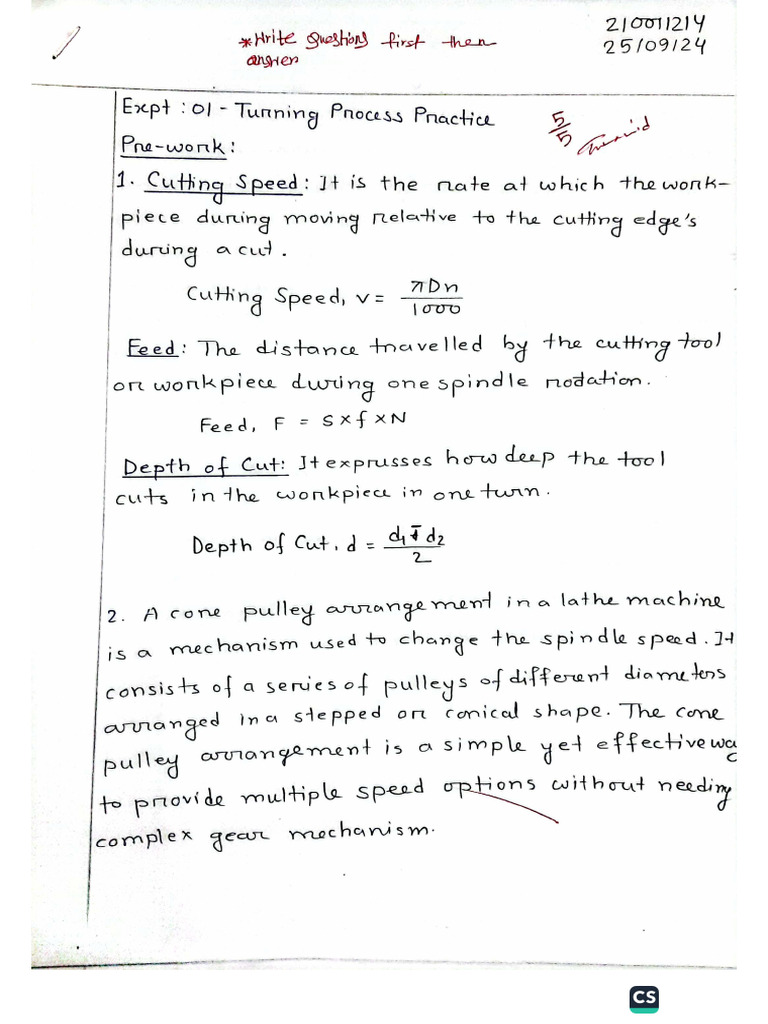 210011214
25/09/24
*Write Questions first then
answer
Expt : 01 - Turning Process Practice
5/5
Pre-work :
1. Cutting Speed : It is the rate at which the work-
piece during moving relative to the cutting edge's
during a cut.
Cutting Speed, v = πDn/1000
Feed : The distance travelled by the cutting tool
or workpiece during one spindle rodation.
Feed, F = S×f×N
Depth of Cut: It exprusses how deep the tool
cuts in the workpiece in one turn.
Depth of Cut, d = d₁-d₂/2
2. A cone pulley arrangement in a lathe machine
is a mechanism used to change the spindle speed. It
consists of a series of pulleys of different diameters
arranged in a stepped or conical shape. The cone
pulley arrangement is a simple yet effective way
to provide multiple speed options without needing
complex gear mechanism.
CS